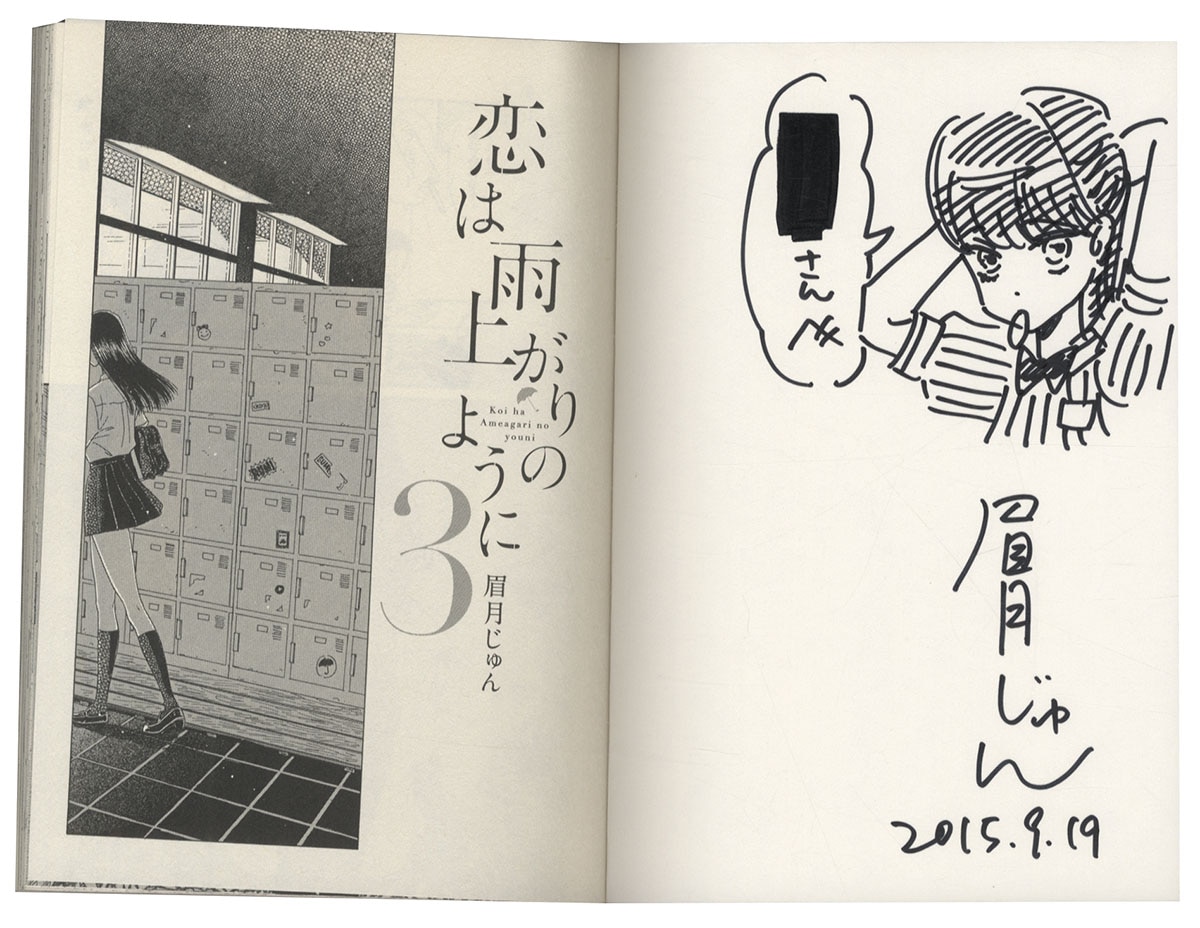 恋は雨上がりのように
Koi ha
Ameagari no
youni
3
眉月じゅん
さん江
眉月じゅん
2015.9.19